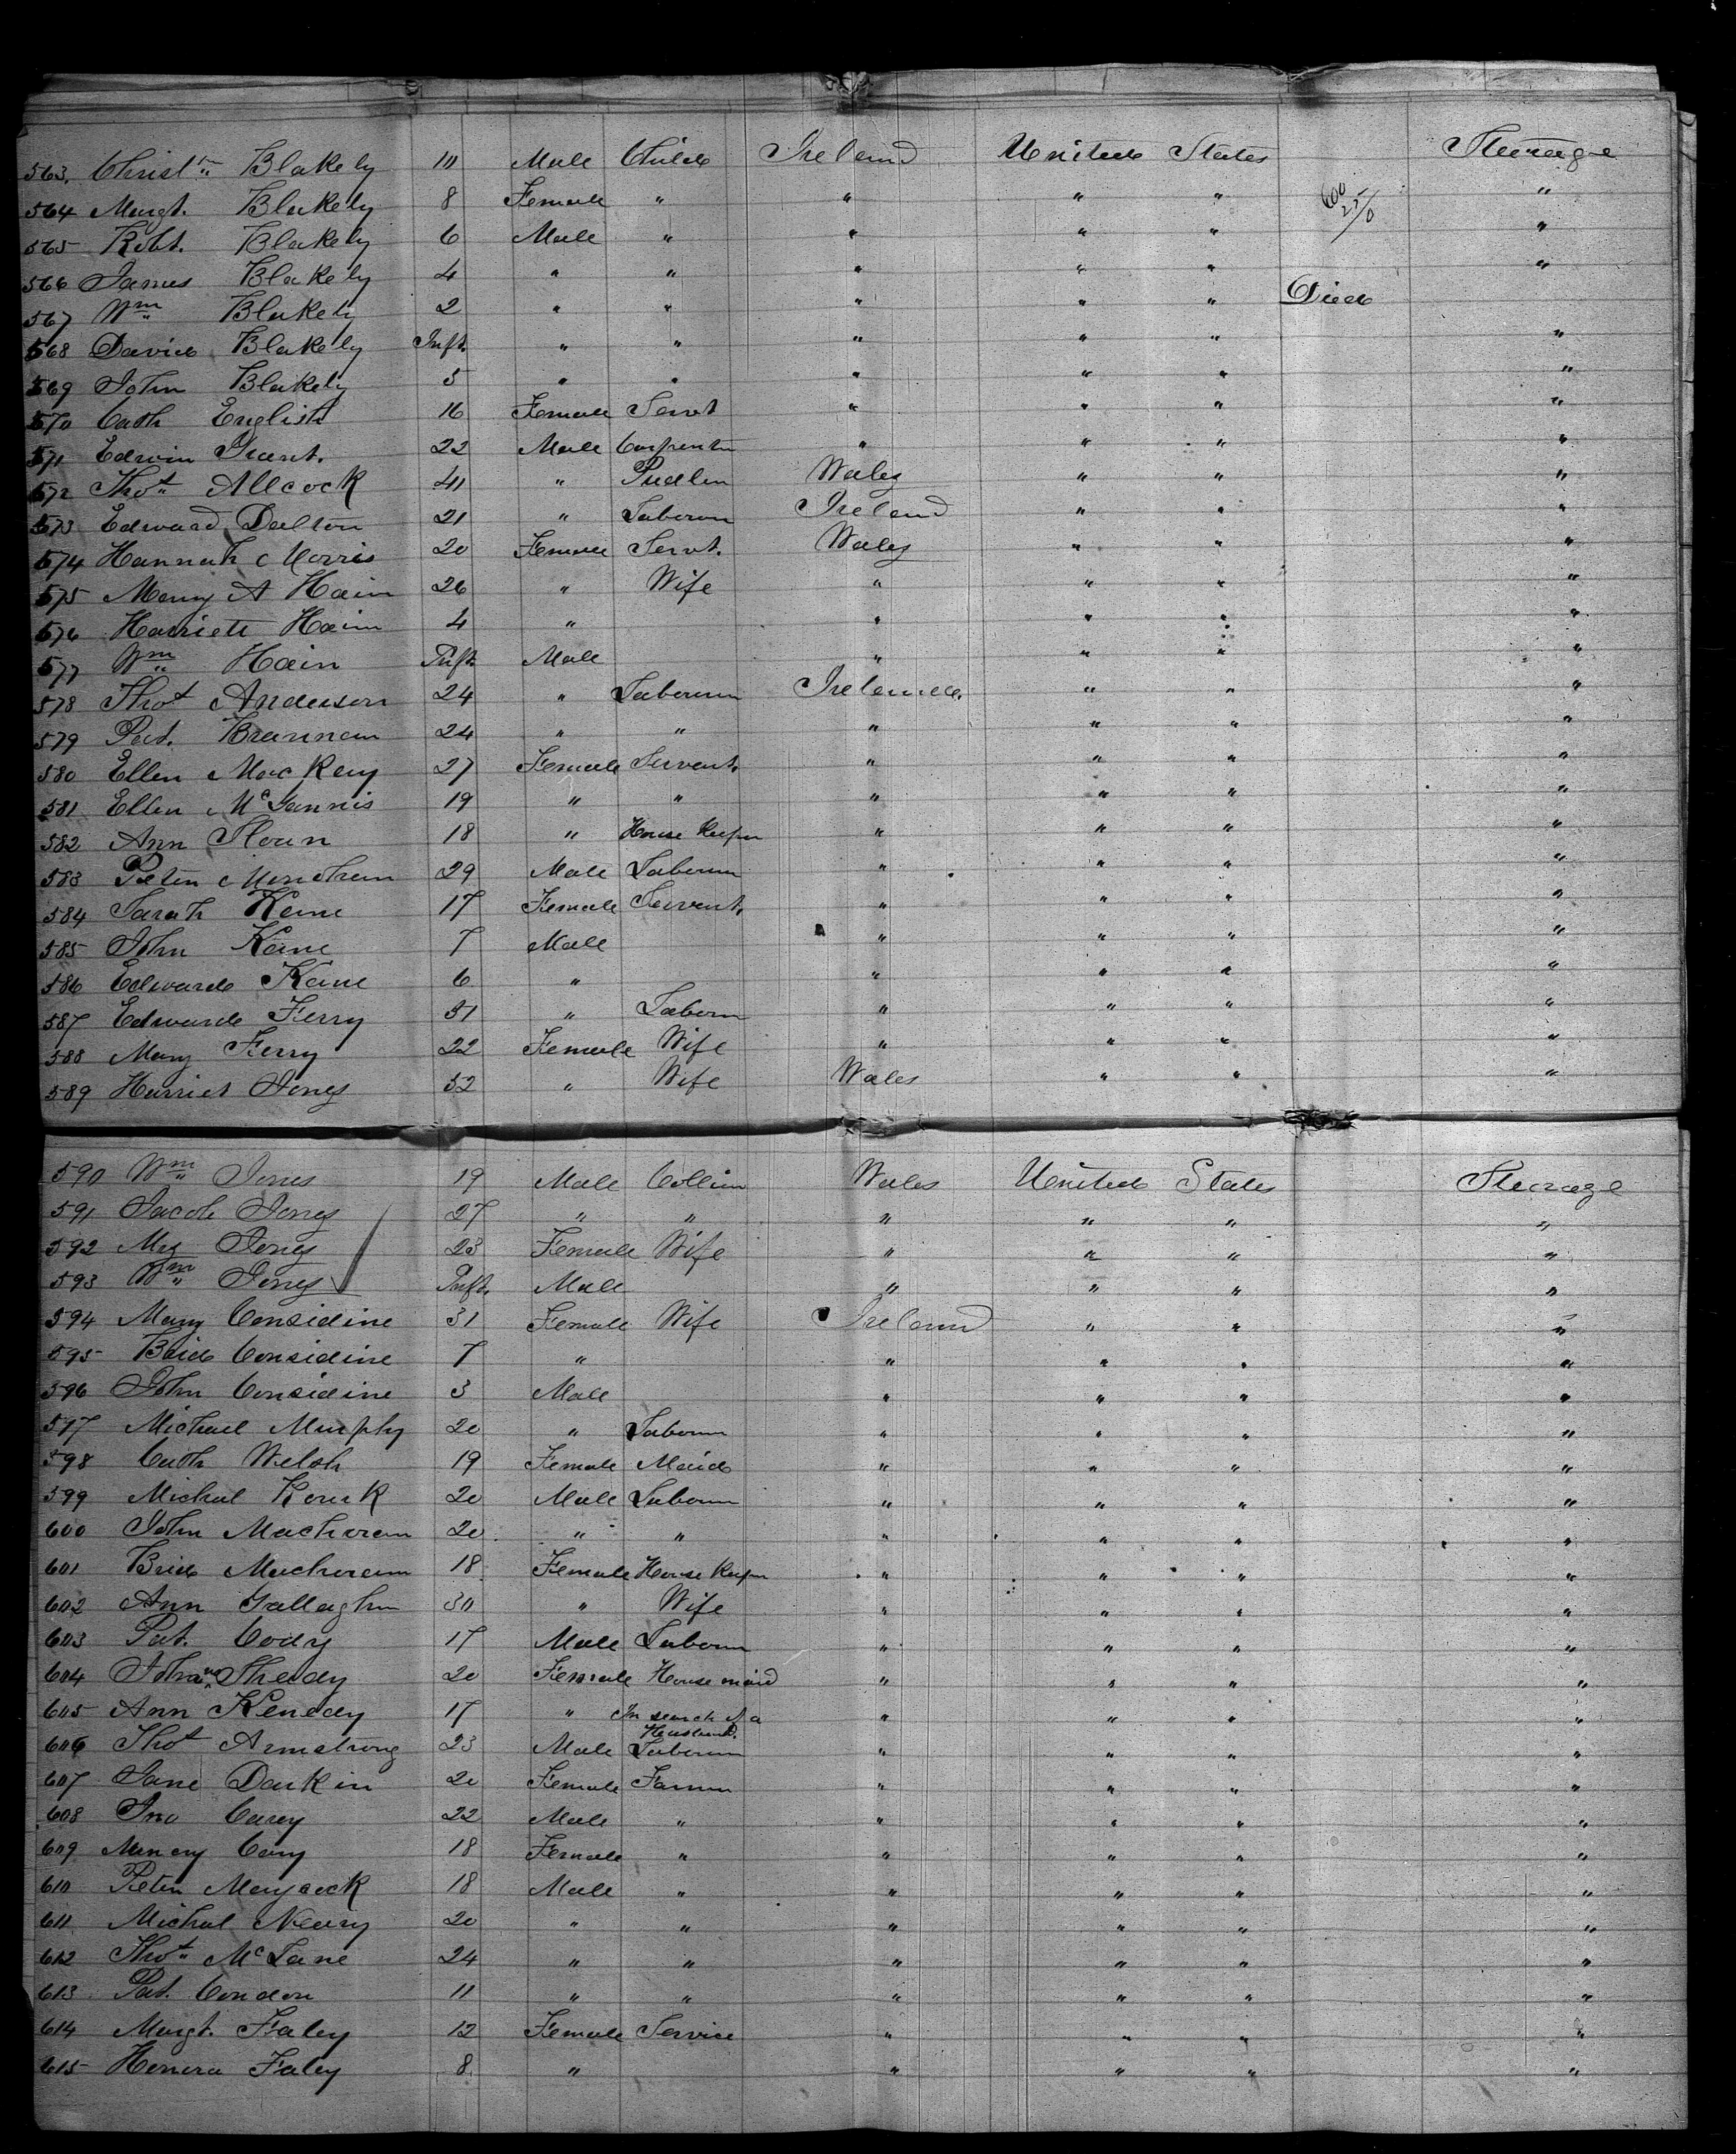 563. Christn Blakely 10 Male Child Ireland United States Steerage
564 Margt. Blakely 8 Female " " " " "
565 Robt. Blakely 6 Male " " " " "
566 James Blakely 4 " " " " " "
567 Wm Blakely 2 " " " " " Died
568 David Blakely Inft. " " " " " "
569 John Blakely 5 " " " " " "
570 Cath English 16 Female Servt " " " "
571 Edwin Grant. 22 Male Carpenter " " " "
572 Thos Allcock 41 " Pudler Wales " " "
573 Edward Dalton 21 " Laborer Ireland " " "
574 Hannah Morris 20 Female Servt. Wales " " "
575 Mary A Hain 26 " Wife " " " "
576 Harriett Hain 4 " " " " "
577 Wm Hain Inft. Male " " " "
578 Thos Anderson 24 " Laborer Ireland. " " "
579 Pat. Brannan 24 " " " " " "
580 Ellen MacKey 27 Female Servant. " " " "
581 Ellen McGannis 19 " " " " " "
582 Ann Sloan 18 " House Keeper " " " "
583 Peter 29 Male Laborer " " " "
584 Sarah Kane 17 Female Servant. " " " "
585 John Kane 7 Male " " " "
586 Edward Kane 6 " " " " "
587 Edward Ferry 31 " Laborer " " " "
588 Mary Ferry 22 Female Wife " " " "
589 Harriet Jones 52 " Wife Wales " " "
590 Wm Jones 19 Male Collier Wales United States Steerage
591 Jacob Jones 27 " " " " " "
592 Mrs Jones 23 Female Wife " " " "
593 Wm Jones Inft. Male " " " "
594 Mary Considine 31 Female Wife Ireland " " "
595 Brid Considine 7 " " " " "
596 John Considine 3 Male " " " "
597 Michael Murphy 20 " Laborer " " " "
598 Cath Welsh 19 Female Maid " " " "
599 Michal 20 Male Laborer " " " "
600 John Machoran 20 " " " " " "
601 Brid Machoran 18 Female House Keeper " " " "
602 Ann Gallagher 30 " Wife " " " "
603 Pat. Cody 17 Male Laborer " " " "
604 Johanna Shedy 20 Female House maid " " " "
605 Ann Kenedy 17 " In search of a Husband. " " " "
606 Thos Armstrong 23 Male Laborer " " " "
607 Jane Darkin 20 Female Farmer " " " "
608 Jno Carey 22 Male " " " " "
609 Cary 18 Female " " " " "
610 Peter Mayjack 18 Male " " " " "
611 Michal Neary 20 " " " " " "
612 Thos McLane 24 " " " " " "
613 Pat. Condon 11 " " " " " "
614 Margt. Faley 12 Female Service " " " "
615 Honora Faley 8 " " " " "